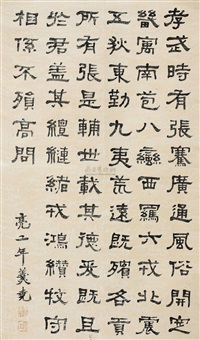 孝武時有張騫廣通風俗開定
畿寓南苞八蠻西羈六戎北震
五狄東勤九夷荒遠既殯各貢
所有張是輔世載其德爰既且
於君蓋其繵縺緒戎鴻纘牧守
相係不殞高問